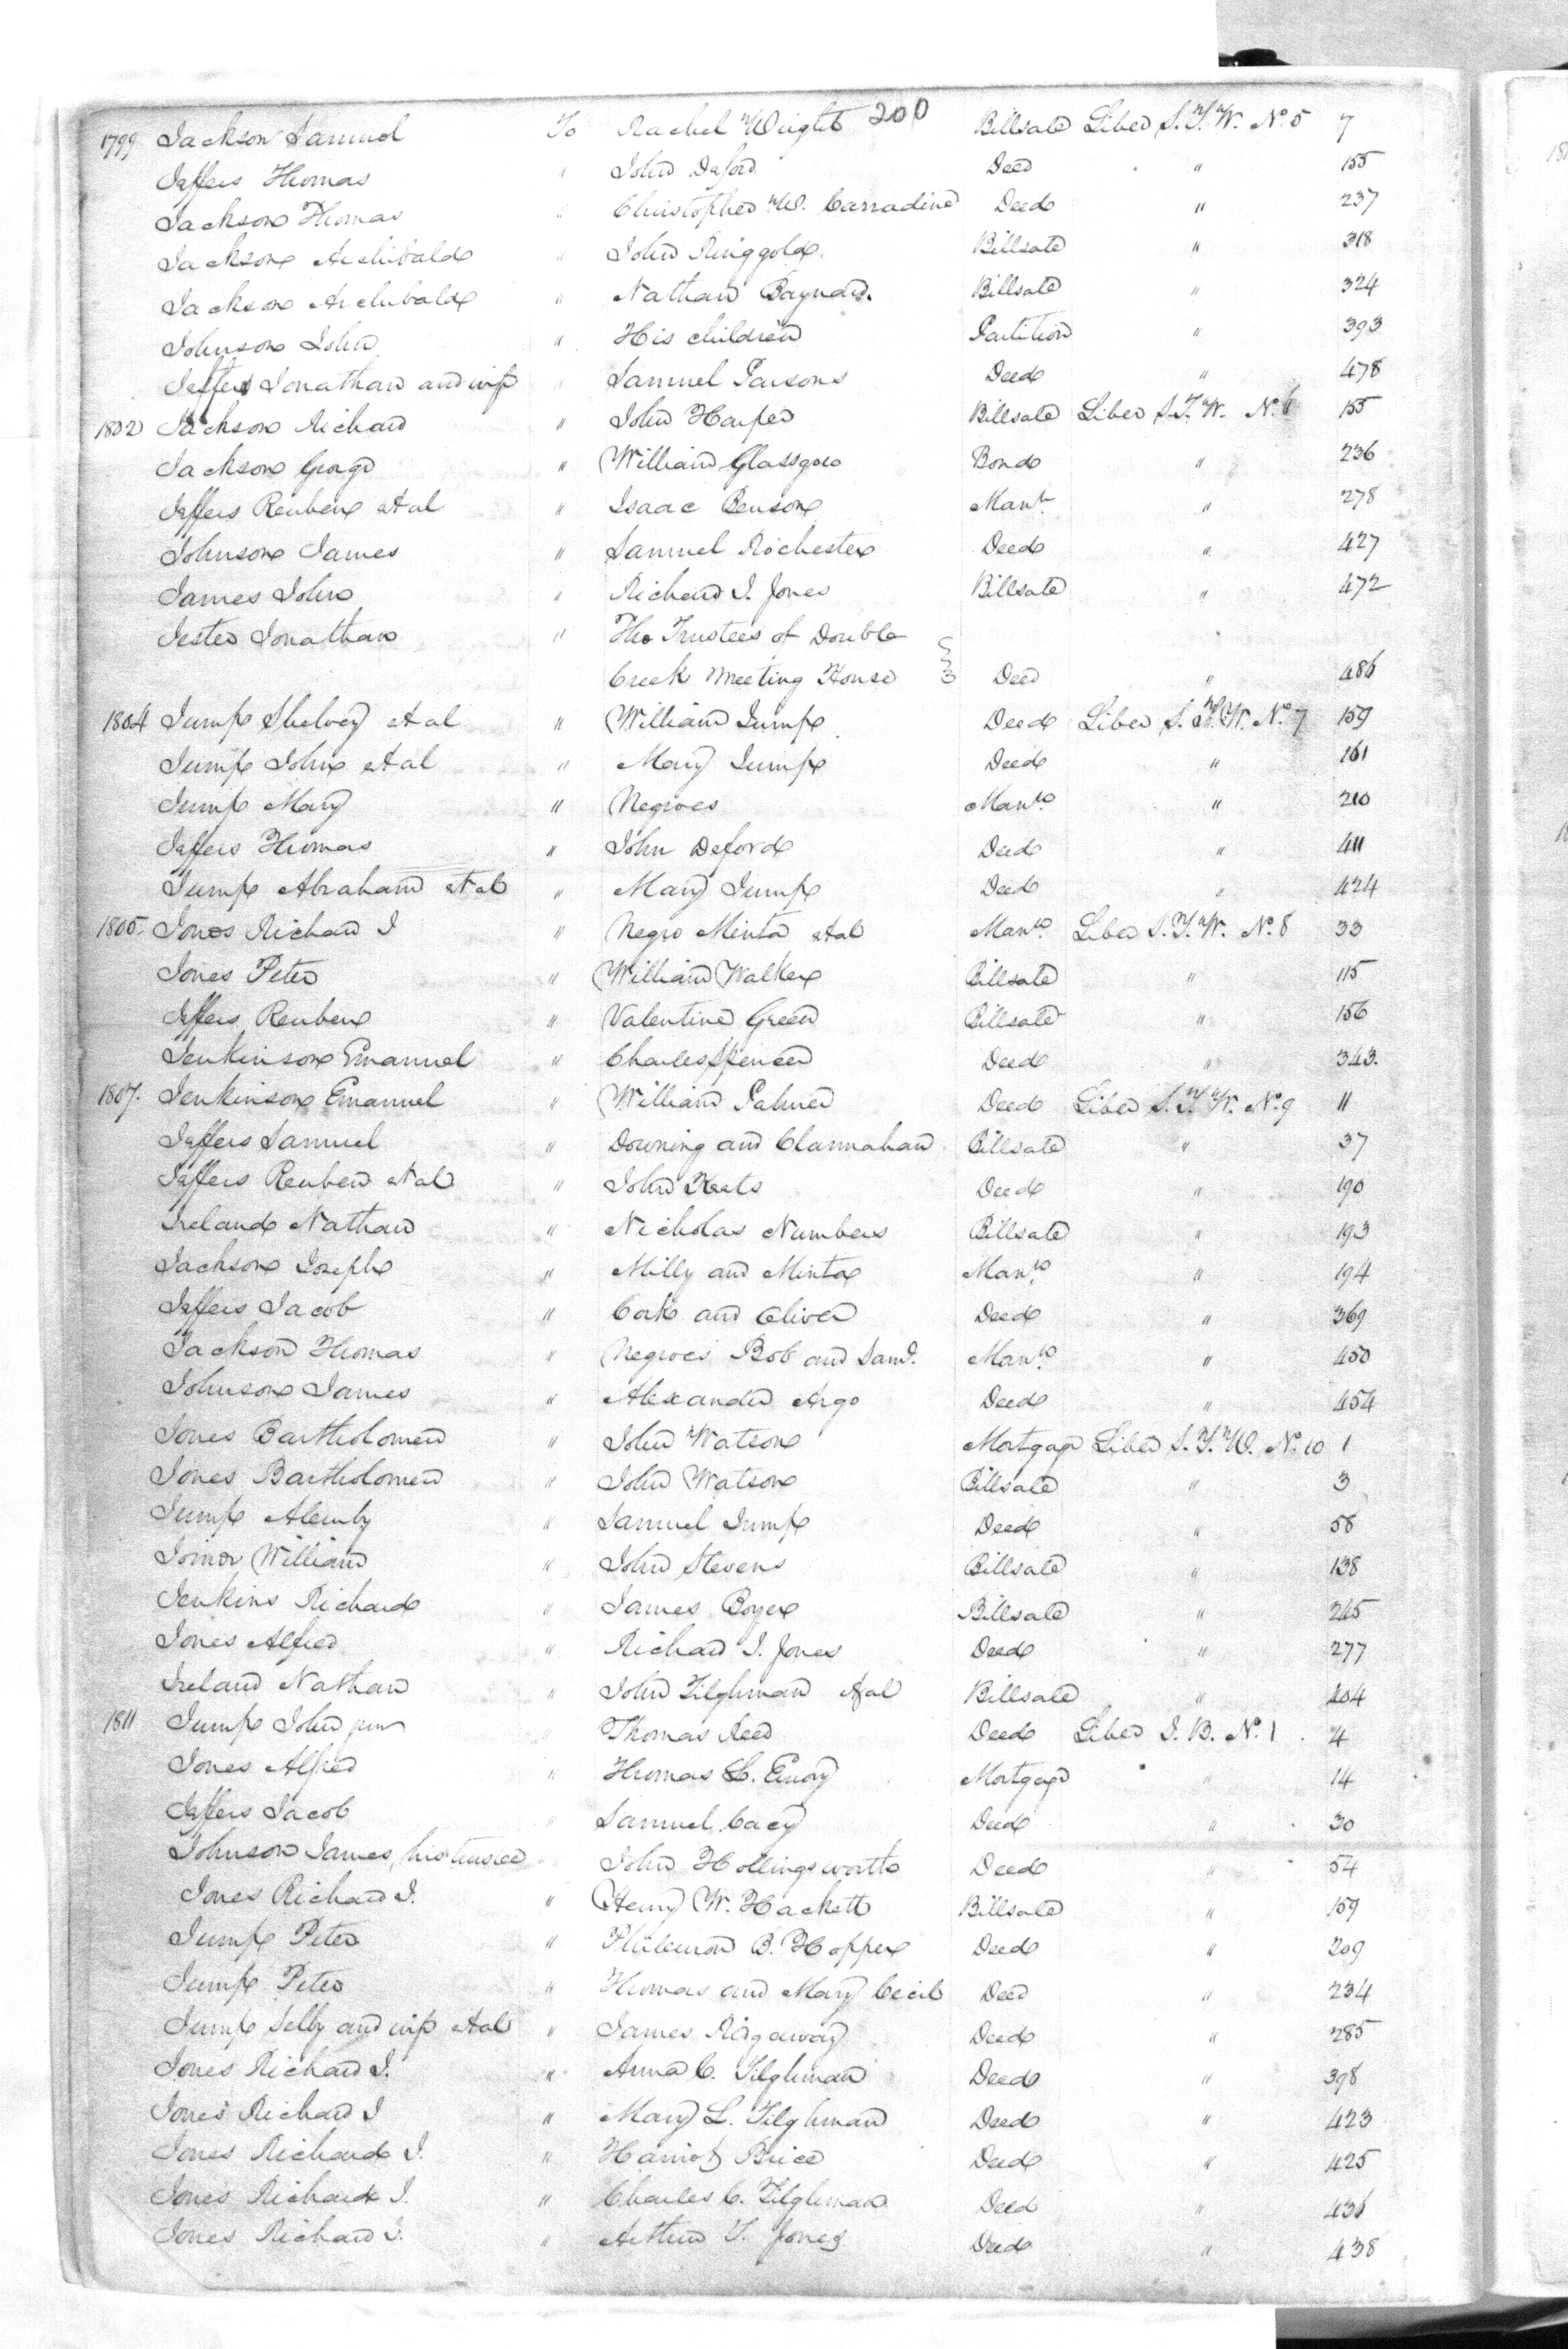 200
1799 Jackson Samuel To Rachel Wright Billsale Liber S.T.W. No. 5 7
Jeffers Thomas " John Deford Deed " 155
Jackson Thomas " Christopher W. Carradine Deed " 237
Jackson Archibald " John Ringgold Billsale " 318
Jackson Archibald " Nathan Baynard. Billsale " 324
Johnson John " His children Partition " 393
Jeffers Jonathan and wife " Samuel Parsons Deed " 478
1802 Jackson Richard " John Harper Billsale Liber S.T.W. No. 6 155
Jackson George " William Glassgow Bond " 236
Jeffers Reuben et al " Isaac Benson Man. " 278
Johnson James " Samuel Rochester Deed " 427
James John " Richard I. Jones Billsale " 472
Jester Jonathan " The Trustees of Double
Creek Meeting House Deed " 486
1804 Jump Shelvey et al " William Jump Deed Liber S.T.W. No. 7 159
Jump John et al " Mary Jump Deed " 161
Jump Mary " Negroes Man.to " 210
Jeffers Thomas " John Deford Deed " 411
Jump Abraham et al " Mary Jump Deed " 424
1805. Jones Richard I " Negro Minta et al Man.to Liber S.T.W. No. 8 33
Jones Peter " William Walker Billsale " 115
Jeffers Reuben " Valentine Green Billsale " 156
Jenkinson Emanuel " Charles Spencer Deed " 343.
1807. Jenkinson Emanuel " William Palmer Deed Liber S.T.W. No. 9 11
Jeffers Samuel " Downing and Clannahan Billsale " 37
Jeffers Reuben et al " John Keets Deed " 190
Ireland Nathan " Nicholas Numbers Billsale " 193
Jackson Joseph " Milly and Minta Man.to " 194
Jeffers Jacob " Cork and Oliver Deed " 369
Jackson Thomas " Negroes Bob and Sam. Man.to " 450
Johnson James " Alexander Argo Deed " 454
Jones Bartholomew " John Watson Mortgage Liber S.T.W. No. 10 1
Jones Bartholomew " John Watson Billsale " 3
Jump Alemby " Samuel Jump Deed " 58
Joiner William " John Stevens Billsale " 138
Jenkins Richard " James Boyer Billsale " 245
Jones Alfred " Richard I. Jones Deed " 277
Ireland Nathan " John Tilghman et al Billsale " 404
1811 Jump John junr Thomas Reed Deed Liber I. B. No. 1 4
Jones Alfred " Thomas L. Emory Mortgage " 14
Jeffers Jacob " Samuel Cacy Deed " 30
Johnson James, his trustee John Hollingsworth Deed " 54
Jones Richard I. " Henry W. Hackett Billsale " 159
Jump Peter " Philemon B. Hopper Deed " 209
Jump Peter " Thomas and Mary Cecil Deed " 234
Jump Selby and wife et al " James Ridgaway Deed " 285
Jones Richard I. " Anna C. Tilghman Deed " 398
Jones Richard I " Mary L. Tilghman Deed " 423
Jones Richard I. " Harriot Brice Deed " 425
Jones Richard I. " Charles C. Tilghman Deed " 436
Jones Richard I. " Arthur T. Jones Deed " 438